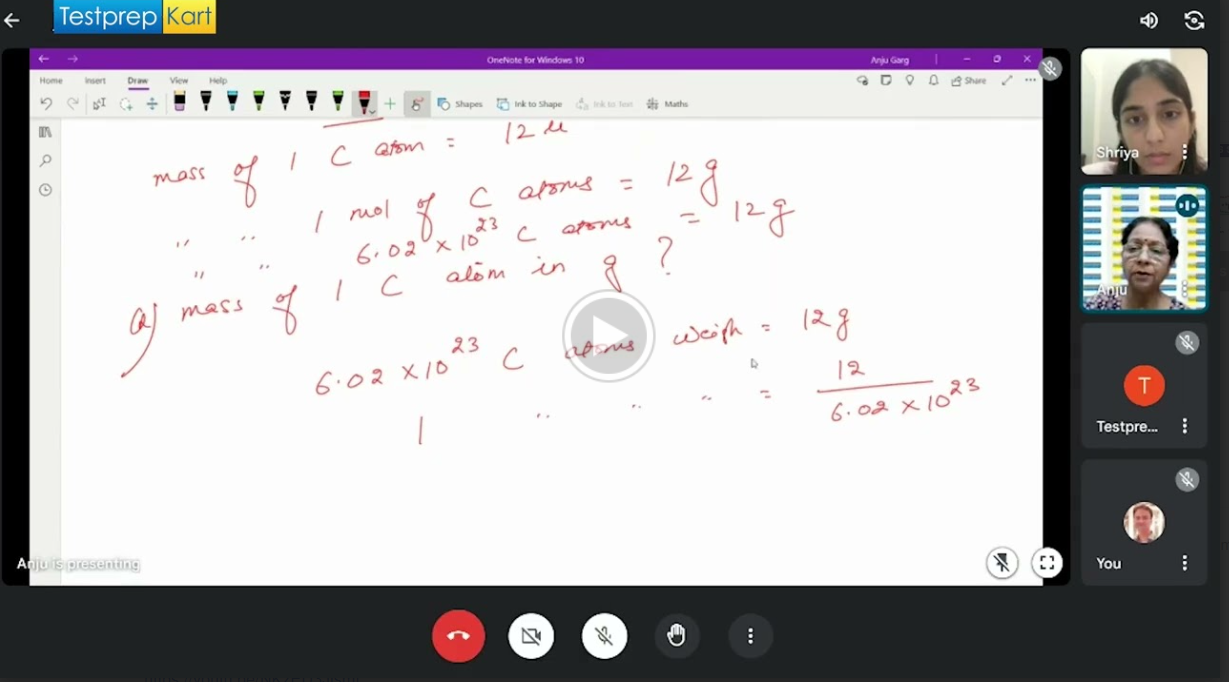 Testprep Kart
OneNote for Windows 10
Anju Garg
Home Insert Draw View Help
Share
Shapes Ink to Shape Ink to Text Maths
mass of 1 C atom = 12 u
" " 1 mol of C atoms = 12 g
" " 6.02 × 10²³ C atoms = 12 g
Q) mass of 1 C atom in g ?
6.02 × 10²³ C atoms weigh = 12 g
1 " " " = 12
6.02 × 10²³
Anju is presenting
Shriya
Anju
T
Testpre...
You